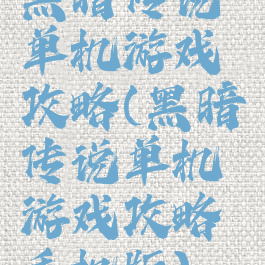 黑暗传说
单机游戏
攻略(黑暗
传说单机
游戏攻略
手机版)